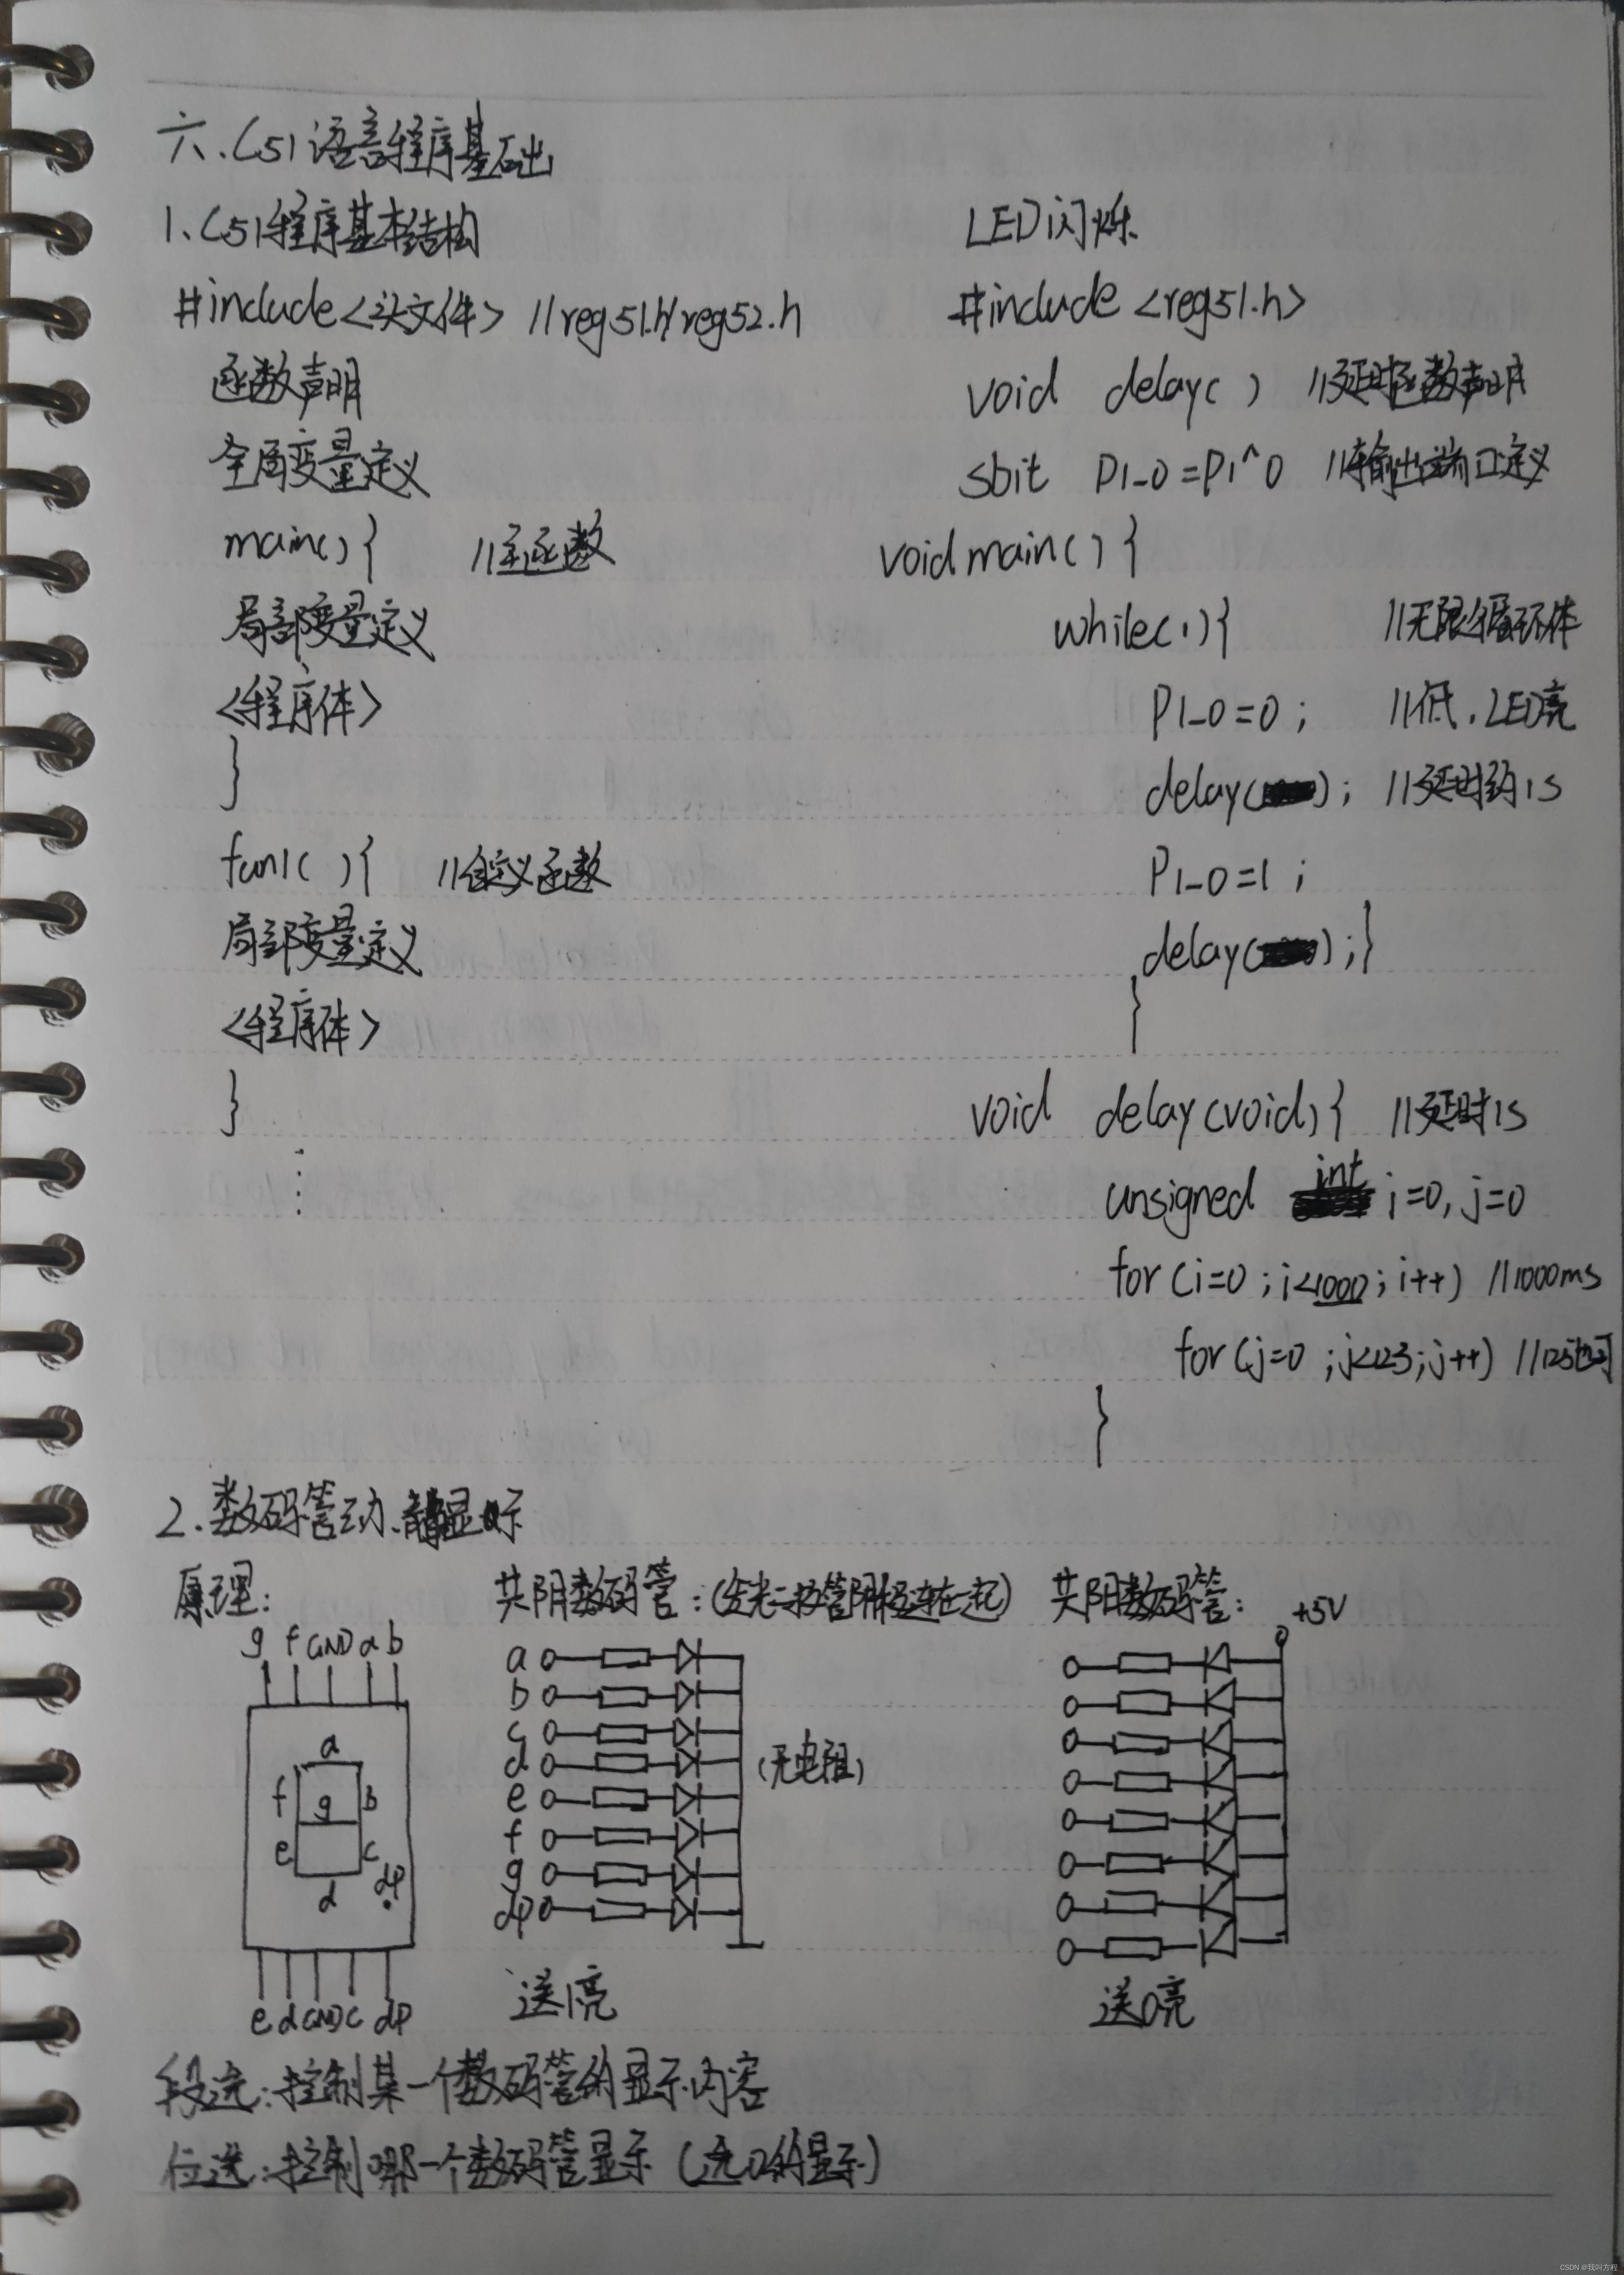 六、C51语言程序基础
1、C51程序基本结构
#include<头文件> //reg51.h/reg52.h
函数声明
全局变量定义
main(){ //主函数
局部变量定义
<程序体>
}
fun1( ){ //自定义函数
局部变量定义
<程序体>
}
⋮
LED闪烁
#include <reg51.h>
void delay( ) //延时函数声明
sbit P1_0=P1^0 //输出端口定义
void main( ) {
while(1){ //无限循环体
P1_0=0; //低,LED亮
delay( ); //延时约1s
P1_0=1;
delay( );}
}
void delay(void){ //延时1s
unsigned int i=0, j=0
for(i=0;i<1000;i++) //1000ms
for(j=0;j<123;j++) //125也可
}
2.数码管动、静显示
原理:
g f GND a b
a
f g b
e c
d dp
e d GND c dp
共阴数码管:(发光二极管阴极连在一起)
a
b
c
d
e
f
g
dp
(无电阻)
送1亮
共阳数码管:
+5V
送0亮
段选:控制某一个数码管的显示内容
位选:控制哪一个数码管显示(送0的显示)
CSDN @我叫方程